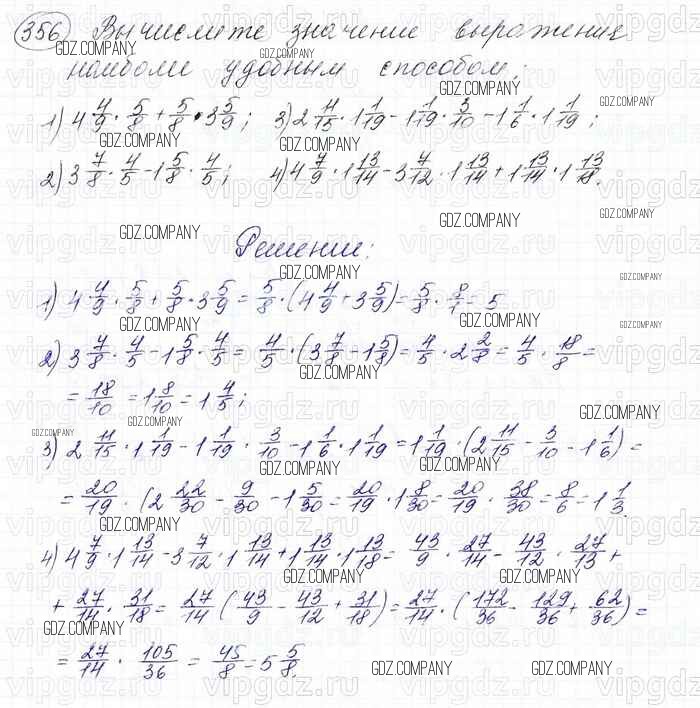 356 Вычислите значение выражения
наиболи удобным способом;
1) 4 4/9 · 5/8 + 5/8 · 3 5/9; 3) 2 11/15 · 1 1/19 - 1 1/19 · 3/10 - 1 1/6 · 1 1/19;
2) 3 7/8 · 4/5 - 1 5/8 · 4/5; 4) 4 7/9 · 1 13/14 - 3 7/12 · 1 13/14 + 1 13/14 · 1 13/18.
Решение:
1) 4 4/9 · 5/8 + 5/8 · 3 5/9 = 5/8 · (4 4/9 + 3 5/9) = 5/8 · 8/1 = 5
2) 3 7/8 · 4/5 - 1 5/8 · 4/5 = 4/5 · (3 7/8 - 1 5/8) = 4/5 · 2 2/8 = 4/5 · 18/8 =
= 18/10 = 1 8/10 = 1 4/5;
3) 2 11/15 · 1 1/19 - 1 1/19 · 3/10 - 1 1/6 · 1 1/19 = 1 1/19 · (2 11/15 - 3/10 - 1 1/6) =
= 20/19 · (2 22/30 - 9/30 - 1 5/30 = 20/19 · 1 8/30 = 20/19 · 38/30 = 8/6 = 1 1/3.
4) 4 7/9 · 1 13/14 - 3 7/12 · 1 13/14 + 1 13/14 · 1 13/18 = 43/9 · 27/14 - 43/12 · 27/13 +
+ 27/14 · 31/18 = 27/14 (43/9 - 43/12 + 31/18) = 27/14 · (172/36 - 129/36 + 62/36) =
= 27/14 · 105/36 = 45/8 = 5 5/8.